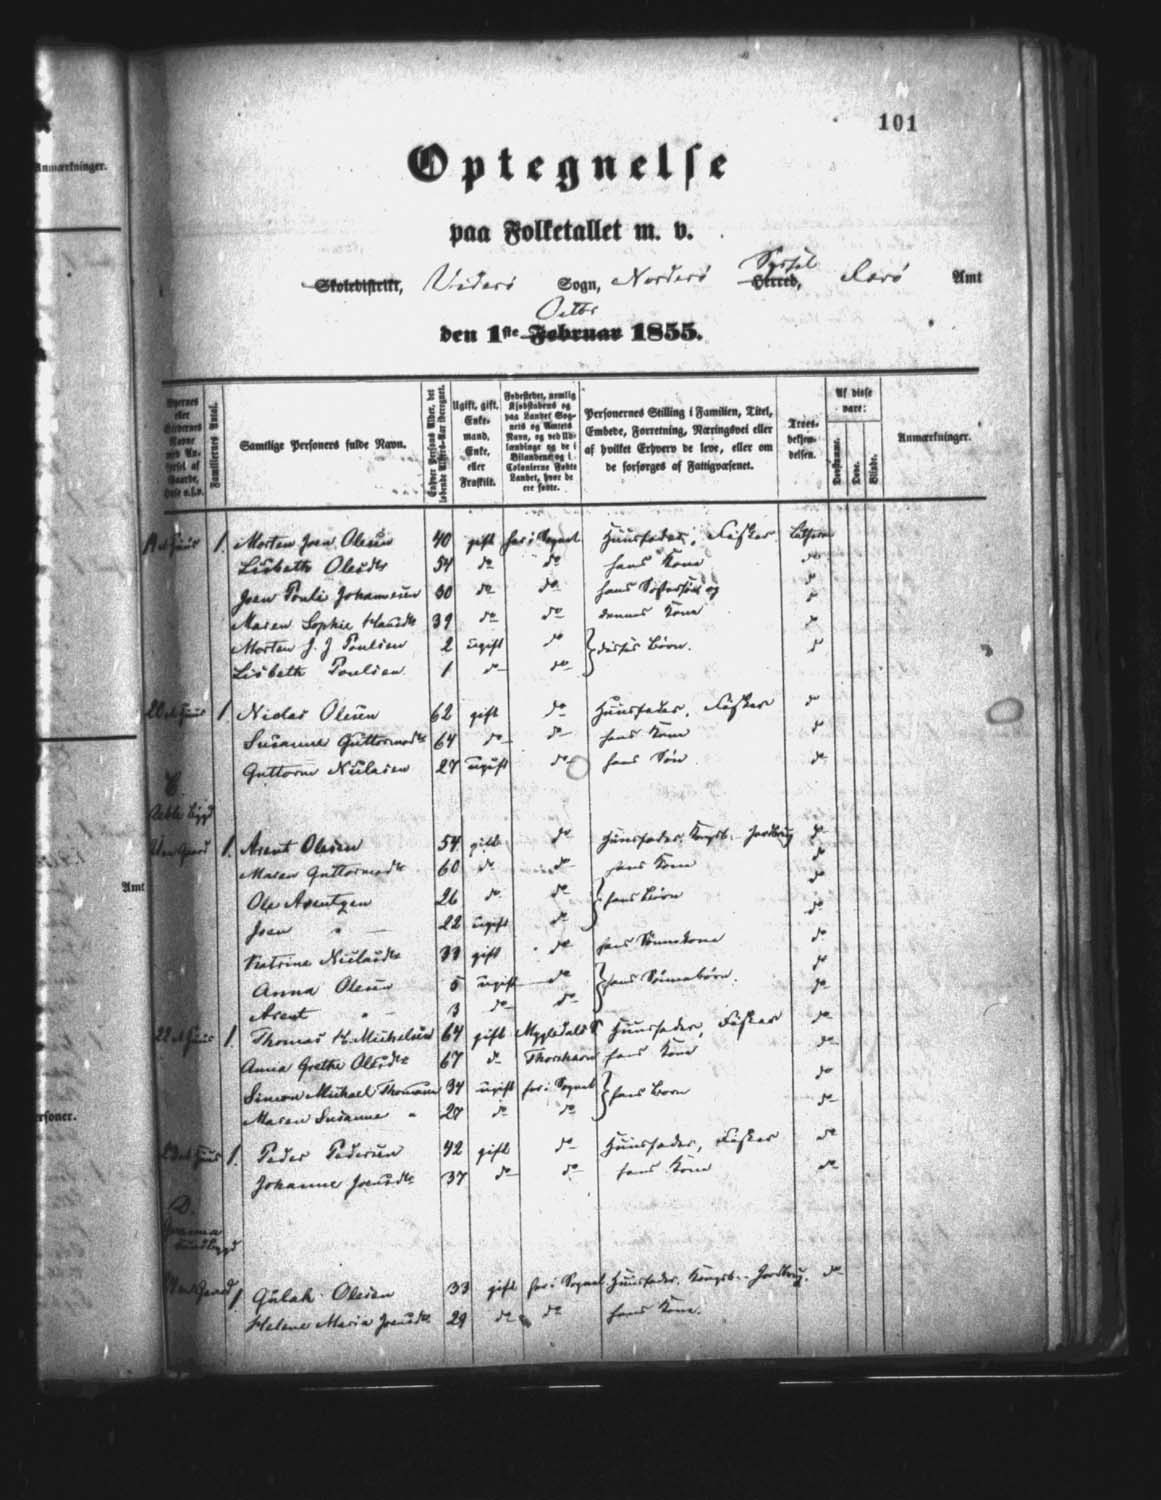 101
Optegnelse
paa Folketallet m. v.
Skoledistrikt, Viderø Sogn, Norderø Herred, Syssel Færø Amt
den 1ste Februar Octbr 1855.
Familiernes Antal.
Samtlige Personers fulde Navn.
Ugift, gift, Enkemand, Enke, eller Fraskilt.
Fødestedet, nemlig Kjøbstadens og paa Landet Sognets og Amtets Navn, og ved Udlændinge og de i Bilandene og i Colonierne Fødte Landet, hvor de ere fødte.
Personernes Stilling i Familien, Titel, Embede, Forretning, Næringsvei eller af hvilket Erhverv de leve, eller om de forsørges af Fattigvæsenet.
Troesbekjendelsen.
Af disse vare:
Døvstumme. Døve. Blinde.
Anmærkninger.
1. Morten Joen Olesen 40 gift her i Sognet Huusfader, Fisker Luthersk
Lisbeth Olesdtr 54 do do hans Kone do
Joen Pouli Johannesen 30 do do hans Søstersøn og do
Maren Sophie Hansdtr 39 do do dennes Kone do
Morten J. J Poulsen 2 ugift do } disses Børn. do
Lisbeth Poulsen 1 do do do
1 Niclas Olesen 62 gift do Huusfader, Fisker do
Susanne Guttormsdtr 64 do do hans Kone do
Guttorm Niclasen 27 ugift do hans Søn do
C.
1. Arent Olesen 54 gift do Huusfader, Kongsb. Jordbrug do
Maren Guttormsdtr 60 do do hans Kone do
Ole Arentzen 26 do do } hans Børn do
Joen " 22 ugift do do
Katrine Niclasdtr 33 gift do hans Sønnekone do
Anna Olesen 5 ugift do } hans Sønnebørn. do
Arent " 3 do do do
22 et Huus 1. Thomas H. Michelsen 64 gift Mygledals S Huusfader, Fisker do
Anna Grethe Olesdtr 67 do Thorshavn hans Kone do
Simon Michael Thomsen 34 ugift her i Sognet } hans Børn do
Maren Susanne " 27 do do do
1. Peder Pedersen 42 gift do Huusfader, Fisker do
Johanne Joensdtr 37 do do hans Kone do
D.
1 Gulak Olesen 33 gift her i Sognet Huusfader. Kongsb. Jordbrug. do
Helene Maria Joensdtr. 29 do do hans Kone.
Anmærkninger.
Amt